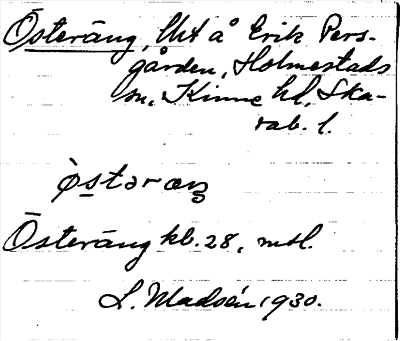 Österäng, lht å Erik Pers-
gården, Holmestads
sn, Kinne hd, Ska-
rab. l.
östəræŋ
Österäng kb. 28, mtl.
L. Madsén 1930.